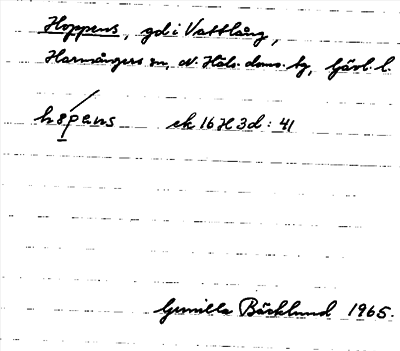 Hoppens, gd i Vattlång,
Harmångers sn, N. Häls. doms. tg, Gävl. l.
ek 16 H 3d : 41
Gunilla Bäcklund 1965.